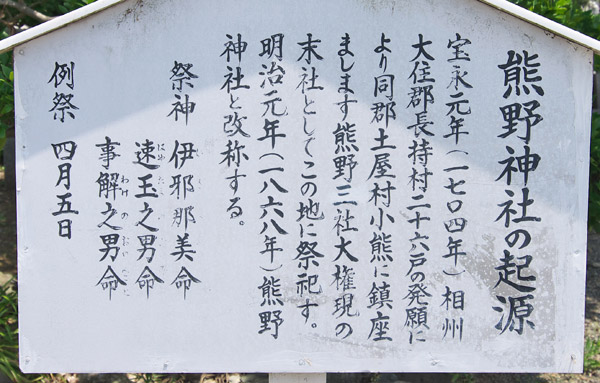 熊野神社の起源
宝永元年(一七〇四年)相州
大住郡長持村二十六戸の発願に
より同郡土屋村小熊に鎮座
まします熊野三社大権現の
末社としてこの地に祭祀す。
明治元年(一八六八年)熊野
神社と改称する。
祭神 伊邪那美命
速玉之男命
事解之男命
例祭 四月五日